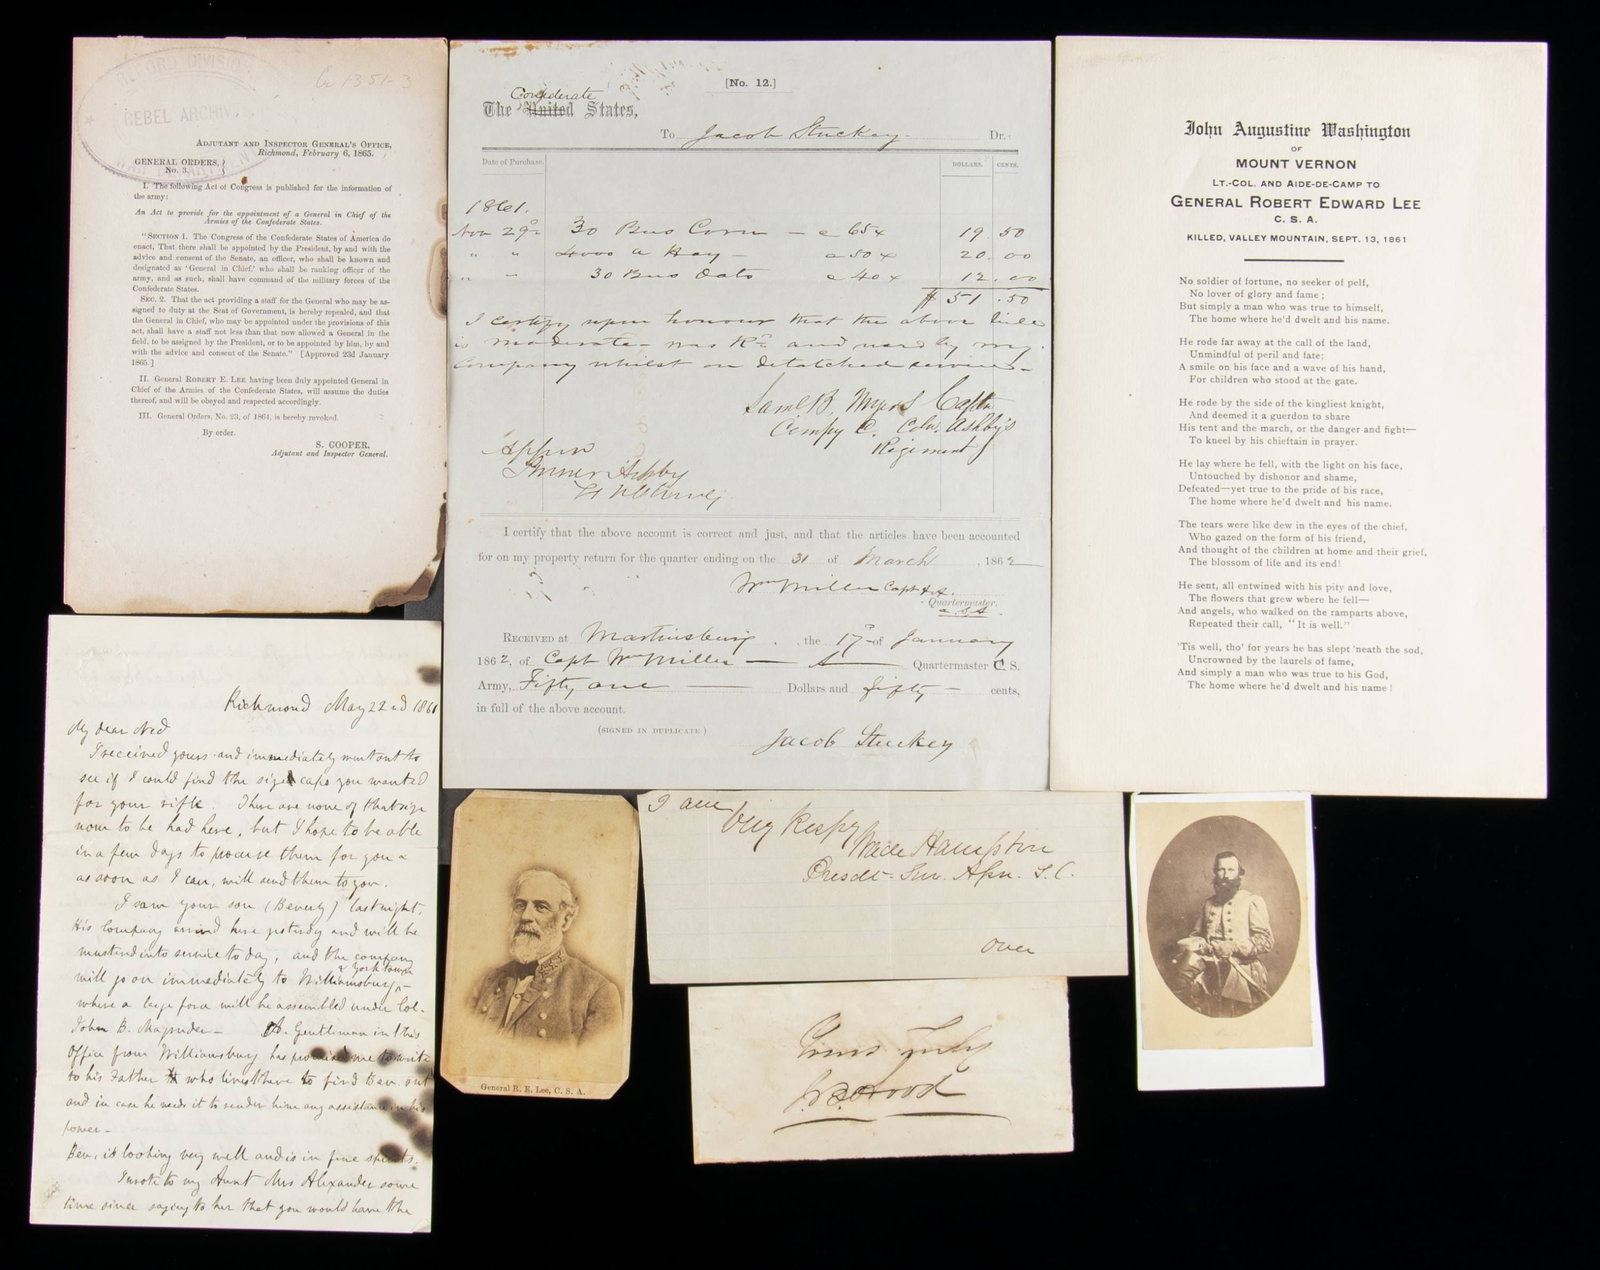 RECORD DIVISION
REBEL ARCHIVES
WAR DEPARTMENT
ADJUTANT AND INSPECTOR GENERAL'S OFFICE,
Richmond, February 6, 1865.
GENERAL ORDERS,
No. 3.
I. The following Act of Congress is published for the information of
the army:
An Act to provide for the appointment of a General in Chief of the
Armies of the Confederate States.
"SECTION 1. The Congress of the Confederate States of America do
enact, That there shall be appointed by the President, by and with the
advice and consent of the Senate, an officer, who shall be known and
designated as 'General in Chief,' who shall be ranking officer of the
army, and as such, shall have command of the military forces of the
Confederate States.
SEC. 2. That the act providing a staff for the General who may be as-
signed to duty at the Seat of Government, is hereby repealed, and that
the General in Chief, who may be appointed under the provisions of this
act, shall have a staff not less than that now allowed a General in the
field, to be assigned by the President, or to be appointed by him, by and
with the advice and consent of the Senate." [Approved 23d January
1865.]
II. General ROBERT E. LEE having been duly appointed General in
Chief of the Armies of the Confederate States, will assume the duties
thereof, and will be obeyed and respected accordingly.
III. General Orders, No. 23, of 1864, is hereby revoked.
By order.
S. COOPER,
Adjutant and Inspector General.
[No. 12.]
Confederate
The United States,
To Jacob Stuckey Dr.
Date of Purchase. DOLLARS. CENTS.
1861.
Nov 29 30 Bus Corn - @ 65 19.50
" " 4000 Hay - @ 50 20.00
" " 30 Bus Oats @ 40 12.00
$51.50
I certify upon honour that the above bill
is moderate - was and used by my
Company whilst on detatched service -
Saml B. Myers Captn
Compy C. Col. Ashby's
Regiment
Turner Ashby
I certify that the above account is correct and just, and that the articles have been accounted
for on my property return for the quarter ending on the 31 of March, 1862
Wm Miller Capt
Quartermaster.
RECEIVED at Martinsburg, the 17 of January
1862, of Capt Wm Miller Quartermaster C. S.
Army, Fifty one Dollars and fifty cents,
in full of the above account.
(SIGNED IN DUPLICATE)
Jacob Stuckey
John Augustine Washington
OF
MOUNT VERNON
LT.-COL. AND AIDE-DE-CAMP TO
GENERAL ROBERT EDWARD LEE
C. S. A.
KILLED, VALLEY MOUNTAIN, SEPT. 13, 1861
No soldier of fortune, no seeker of pelf,
No lover of glory and fame;
But simply a man who was true to himself,
The home where he'd dwelt and his name.
He rode far away at the call of the land,
Unmindful of peril and fate;
A smile on his face and a wave of his hand,
For children who stood at the gate.
He rode by the side of the kingliest knight,
And deemed it a guerdon to share
His tent and the march, or the danger and fight—
To kneel by his chieftain in prayer.
He lay where he fell, with the light on his face,
Untouched by dishonor and shame,
Defeated—yet true to the pride of his race,
The home where he'd dwelt and his name.
The tears were like dew in the eyes of the chief,
Who gazed on the form of his friend,
And thought of the children at home and their grief,
The blossom of life and its end!
He sent, all entwined with his pity and love,
The flowers that grew where he fell—
And angels, who walked on the ramparts above,
Repeated their call, "It is well."
'Tis well, tho' for years he has slept 'neath the sod,
Uncrowned by the laurels of fame,
And simply a man who was true to his God,
The home where he'd dwelt and his name!
Richmond May 22nd 1861
My dear Ned
I received yours and immediately went out to
see if I could find the size caps you wanted
for your rifle. There are none of that size
now to be had here, but I hope to be able
in a few days to procure them for you &
as soon as I can, will send them to you.
I saw your son (Beverly) last night.
His Company arrived here yesterday and will be
mustered into service to day, and the company
will go on immediately to Williamsburg & York town
where a large force will be assembled under Col.
John B. Magruder - A Gentleman in this
Office from Williamsburg has promised me to write
to his Father who lives there to find Bev. out
and in case he needs it to render him any assistance in his
power -
Bev. is looking very well and is in fine spirits.
I wrote to my Aunt Mrs Alexander some
time since saying to her that you would have the
General R. E. Lee, C. S. A.
I am
Very Respy
Wade Hampton
Presdt. Sur. Assn. S. C.
over
Yours Truly
J B Hood